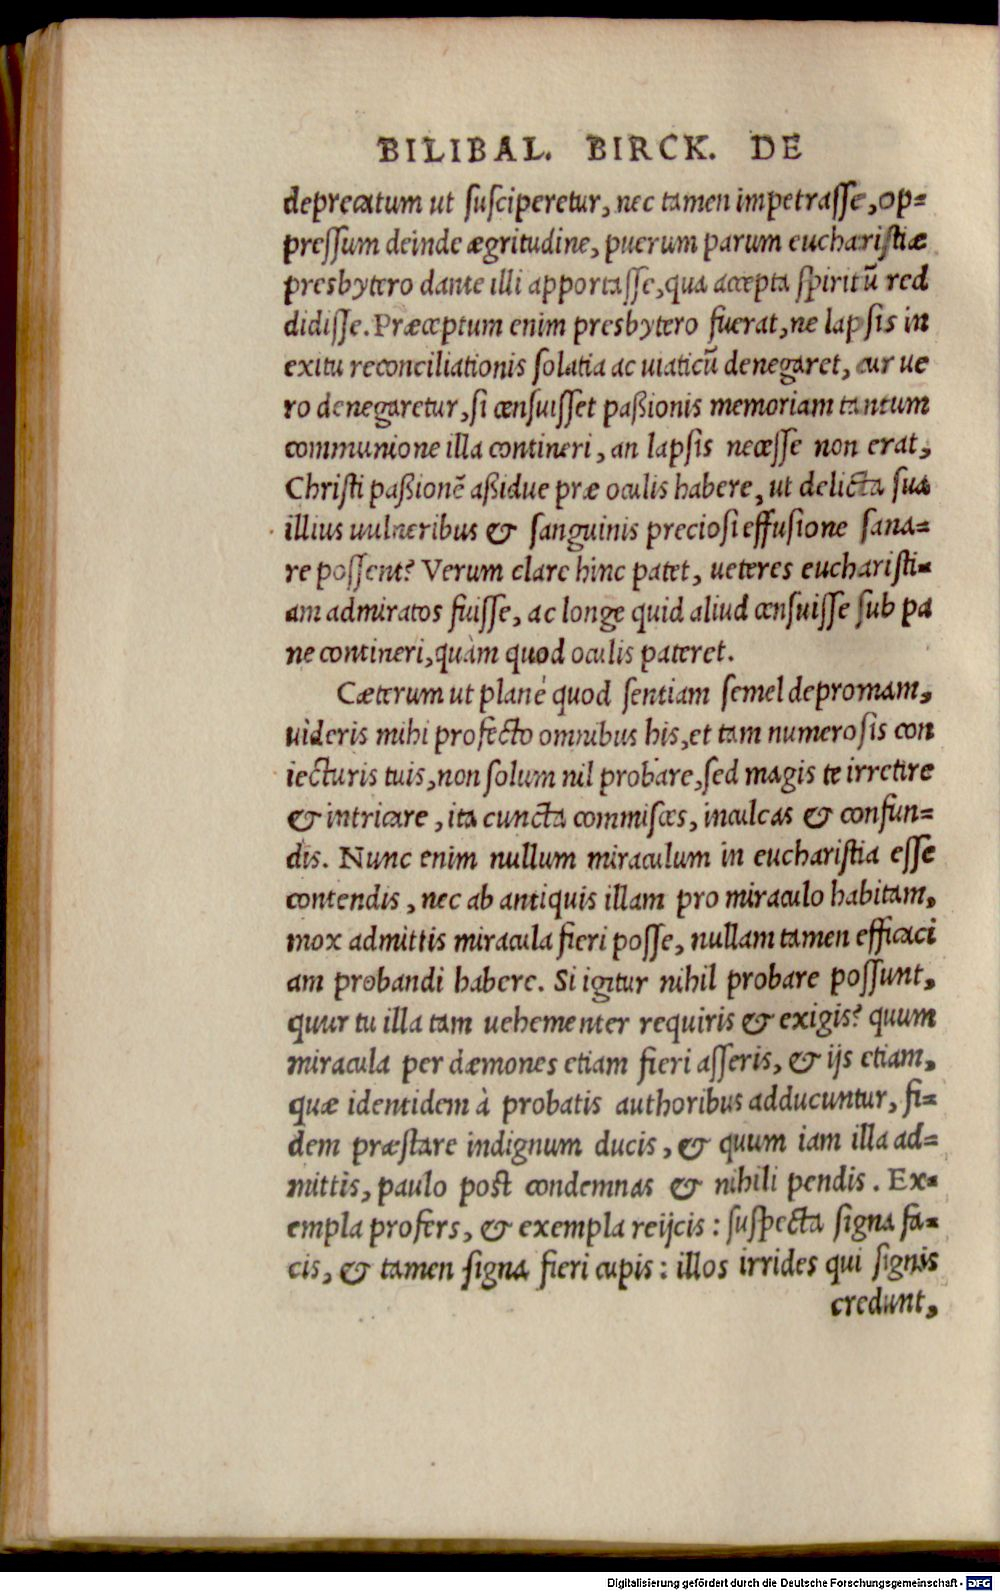 BILIBAL. BIRCK. DE
deprecatum ut ſuſciperetur, nec tamen impetraſſe, op=
preſſum deinde ægritudine, puerum parum euchariſtiæ
presbytero dante illi apportaſſe, qua accepta ſpiritū red
didiſſe. Præceptum enim presbytero fuerat, ne lapſis in
exitu reconciliationis ſolatia ac uiaticū denegaret, cur ue
ro denegaretur, ſi cenſuiſſet paßionis memoriam tantum
communione illa contineri, an lapſis neceſſe non erat,
Chriſti paßionē aßidue præ oculis habere, ut delicta ſua
illius uulneribus & ſanguinis precioſi effuſione ſana=
re poſſent? Verum clare hinc patet, ueteres euchariſti=
am admiratos fuiſſe, ac longe quid aliud cenſuiſſe ſub pa
ne contineri, quàm quod oculis pateret.
Cæterum ut planè quod ſentiam ſemel depromam,
uideris mihi profecto omnibus his, et tam numeroſis con
iecturis tuis, non ſolum nil probare, ſed magis te irretire
& intricare, ita cuncta commiſces, inculcas & confun=
dis. Nunc enim nullum miraculum in euchariſtia eſſe
contendis, nec ab antiquis illam pro miraculo habitam,
mox admittis miracula fieri poſſe, nullam tamen efficaci
am probandi habere. Si igitur nihil probare poſſunt,
quur tu illa tam uehementer requiris & exigis? quum
miracula per dæmones etiam fieri aſſeris, & ijs etiam,
quæ identidem à probatis authoribus adducuntur, fi=
dem præſtare indignum ducis, & quum iam illa ad=
mittis, paulo poſt condemnas & nihili pendis. Ex=
empla profers, & exempla reijcis: ſuſpecta ſigna fa=
cis, & tamen ſigna fieri cupis: illos irrides qui ſignis
credunt,
Digitalisierung gefördert durch die Deutsche Forschungsgemeinschaft - DFG